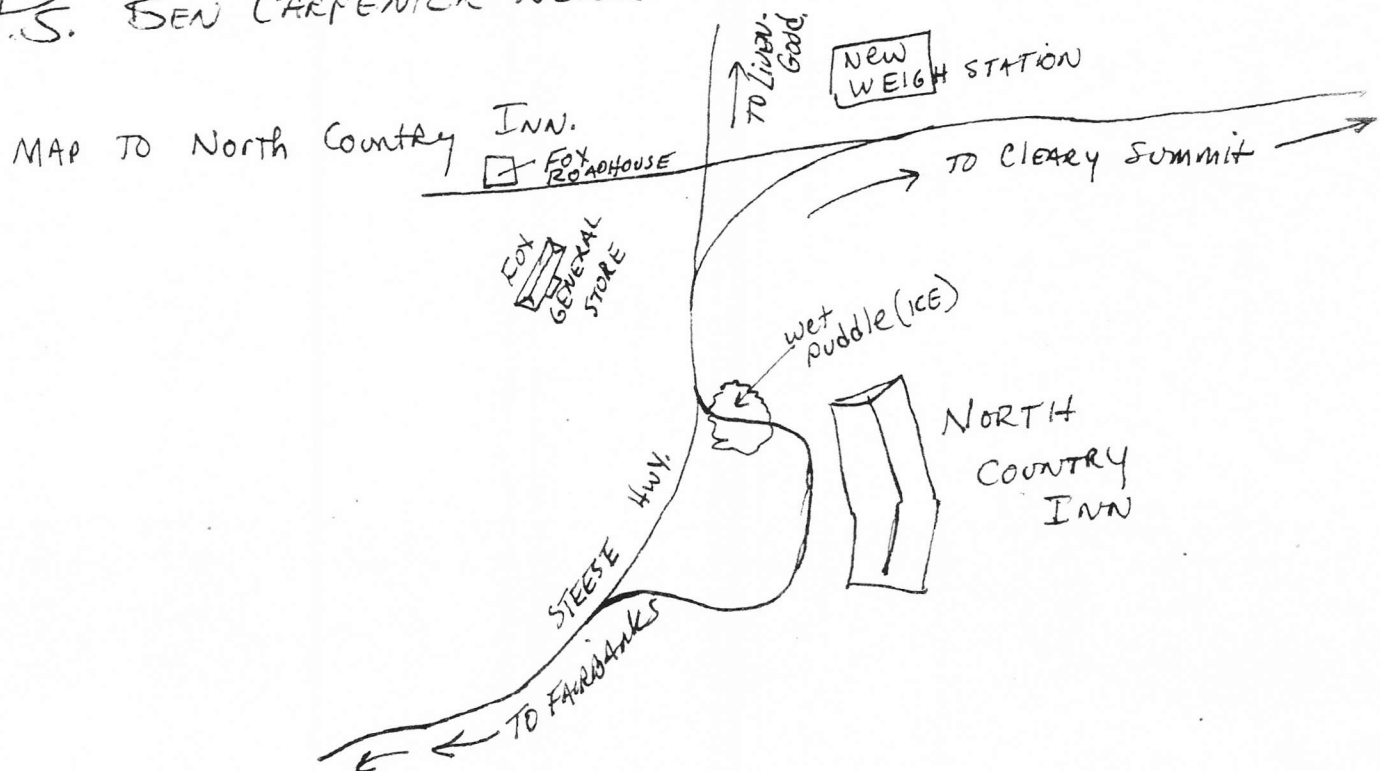 .S. BEN CARPENTER
MAP TO North Country INN.
FOX
ROADHOUSE
TO LIVEN-
GOOD.
NEW
WEIGH STATION
TO CLEARY SUMMIT
FOX
GENERAL
STORE
wet
puddle (ICE)
NORTH
COUNTRY
INN
STEESE HWY.
TO FAIRBANKS